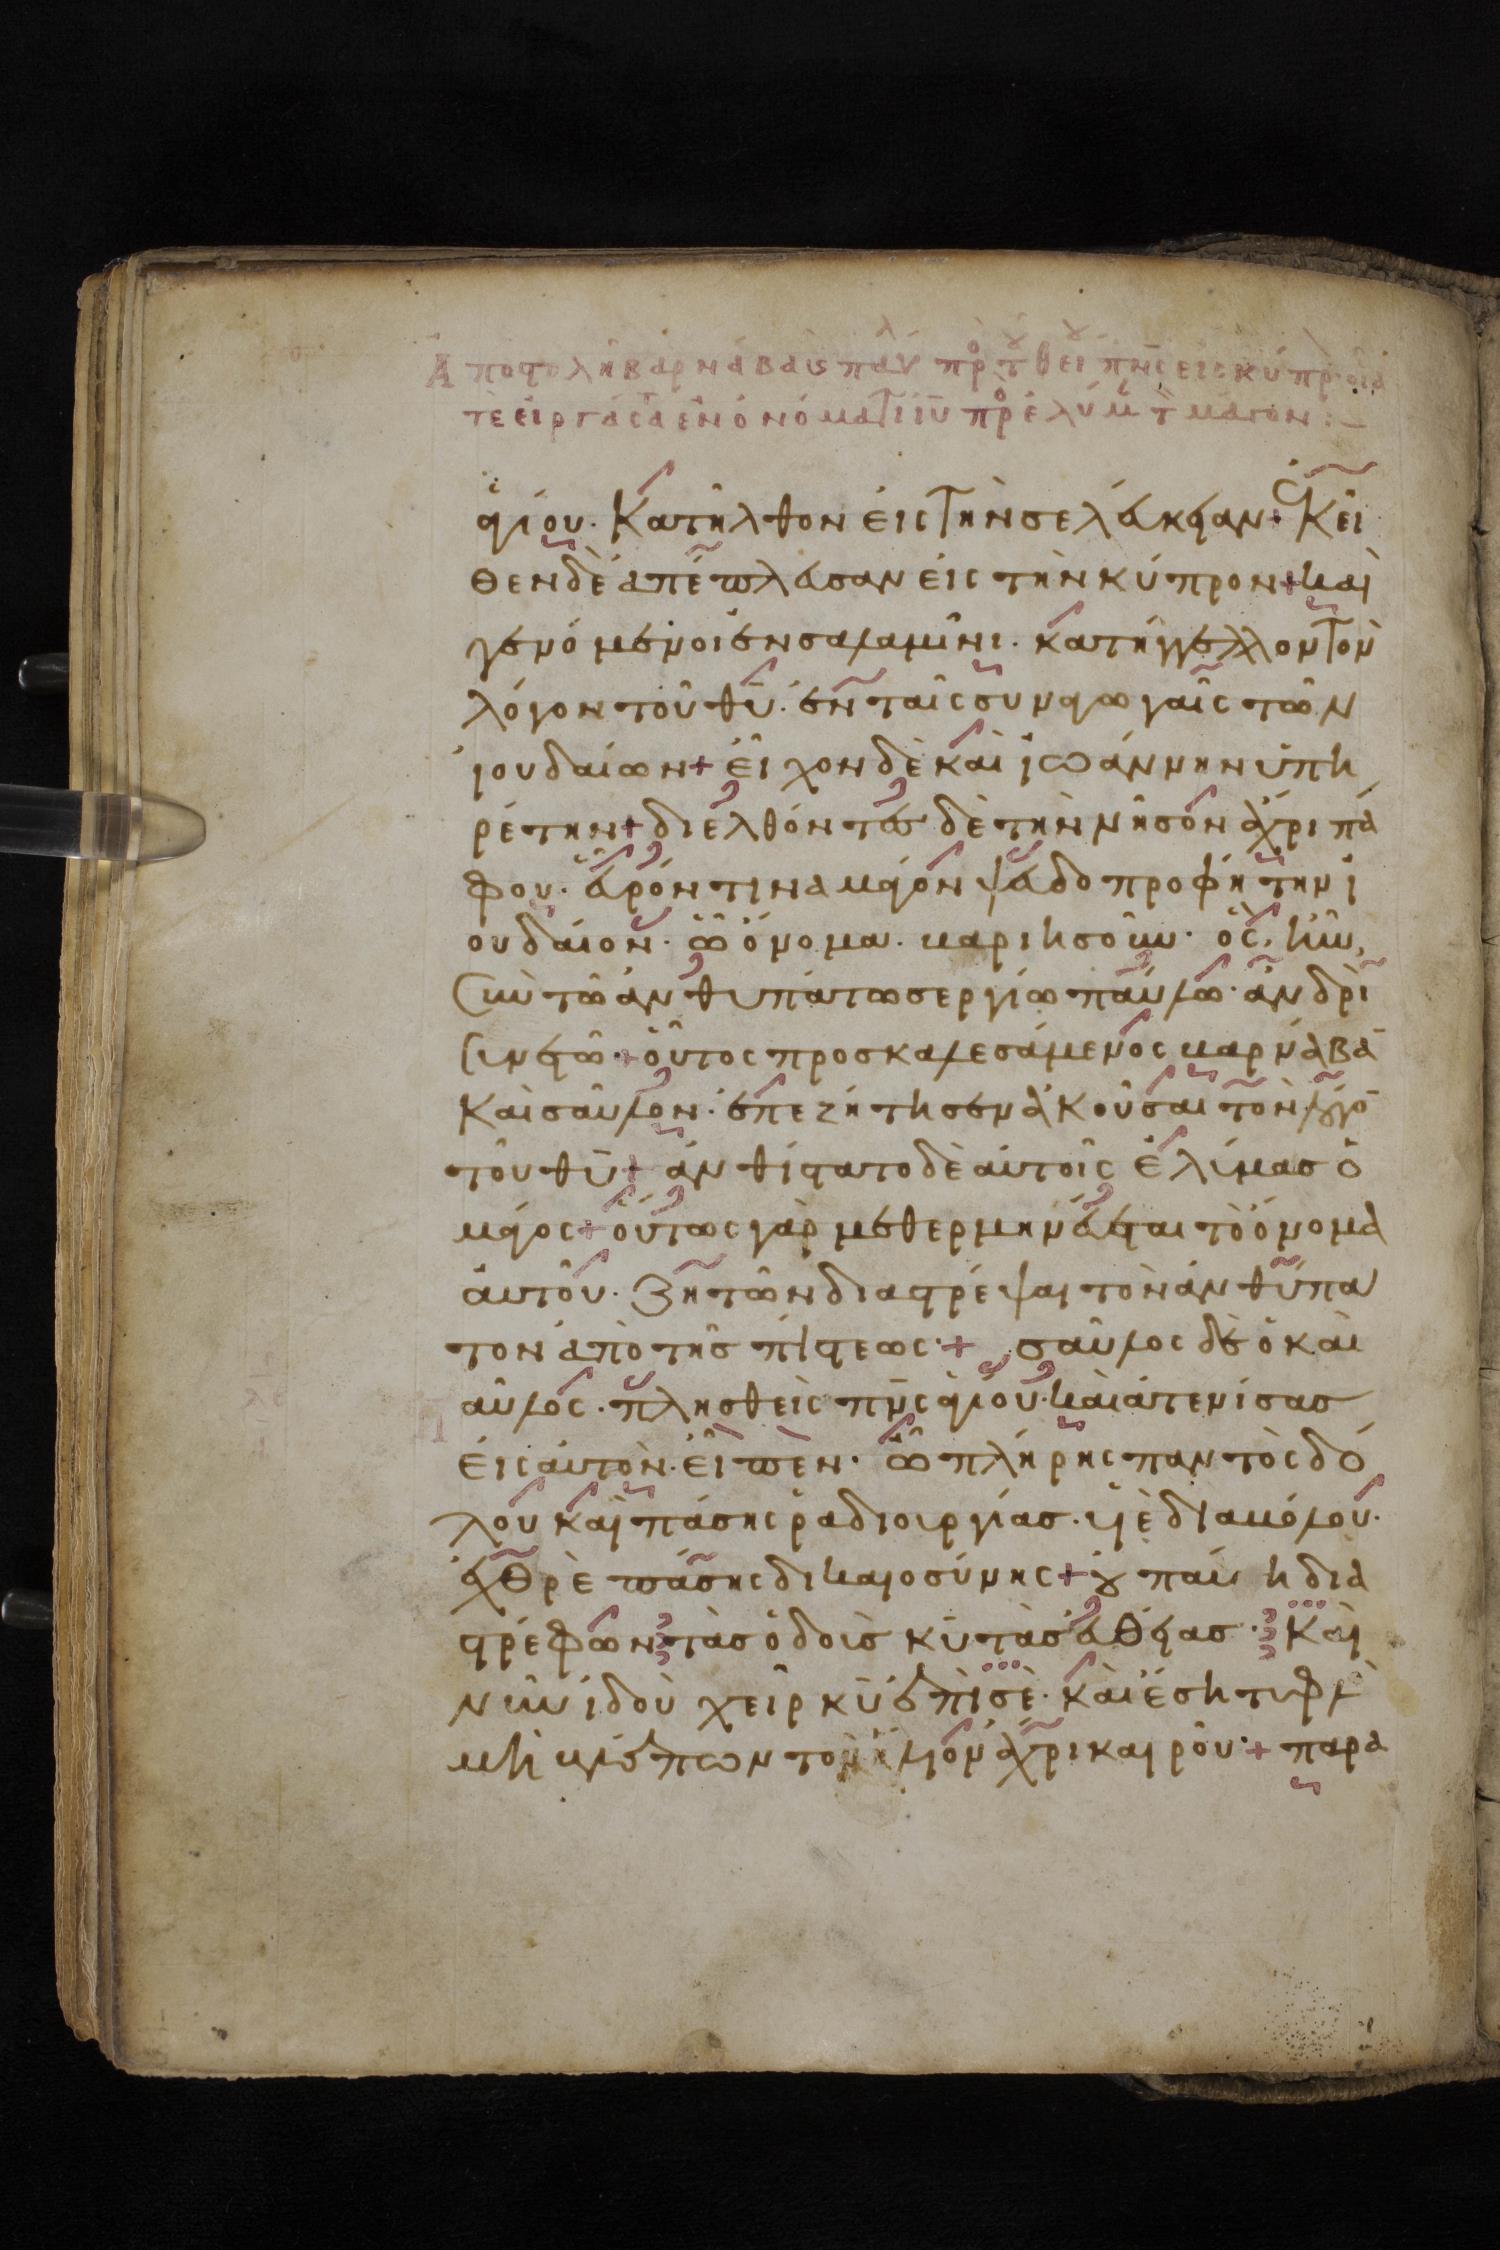 Ἀποστολὴ βαρνάβα ϗ παύλ πρ τ θεί πνς εἰς κύπρ· οἷά
τε εἰργάσατ ἐν ὀνόματι ιυ πρ ἐλύμ τ μάγον:
ἁγίου· Κατῆλθον εἰς τὴν σελεύκειαν· ἐκεῖ
θεν δὲ ἀπέπλευσαν εἰς τὴν κύπρον + καὶ
γενόμενοι ἐν σαλαμῖνι· κατήγγελλον τὸν
λόγον τοῦ θυ· ἐν ταῖς συναγωγαῖς τῶν
ἰουδαίων + εἶχον δὲ καὶ ἰωάννην ὑπη
ρέτην + διελθόντες δὲ τὴν νῆσον ἄχρι πά
φου· εὗρόν τινα μάγον ψευδοπροφήτην ἰ
ουδαῖον· ᾧ ὄνομα· βαριησοῦν· ὃς ἦν
σὺν τῶ ἀνθυπάτω σεργίω παύλω· ἀνδρὶ
συνετῶ· + οὗτος προσκαλεσάμενος βαρνάβαν
καὶ σαῦλον· ἐπεζήτησεν ἀκοῦσαι τὸν λόγον
τοῦ θυ + ἀνθίστατο δὲ αὐτοῖς ἐλίμας ὁ
μάγος + οὕτως γὰρ μεθερμηνεύεται τὸ ὄνομα
αὐτοῦ· ζητῶν διαστρέψαι τὸν ἀνθύπα
τον ἀπὸ τῆς πίστεως· + σαῦλος δὲ ὁ καὶ
παῦλος· πλησθεὶς πνς ἁγίου· καὶ ἀτενίσας
εἰς αὐτὸν· εἶπεν· ὦ πλήρης παντὸς δό
λου καὶ πάσης ῥαδιουργίας· υἱὲ διαβόλου·
ἐχθρὲ πάσης δικαιοσύνης + οὐ παύση δια
στρέφων τὰς ὁδοὺς κυ τὰς εὐθείας· καὶ
νῦν ἰδοὺ χεὶρ κυ ἐπὶ σὲ· καὶ ἔση τυφλὸς
μὴ βλέπων τὸν ἥλιον ἄχρι καιροῦ· + παρα